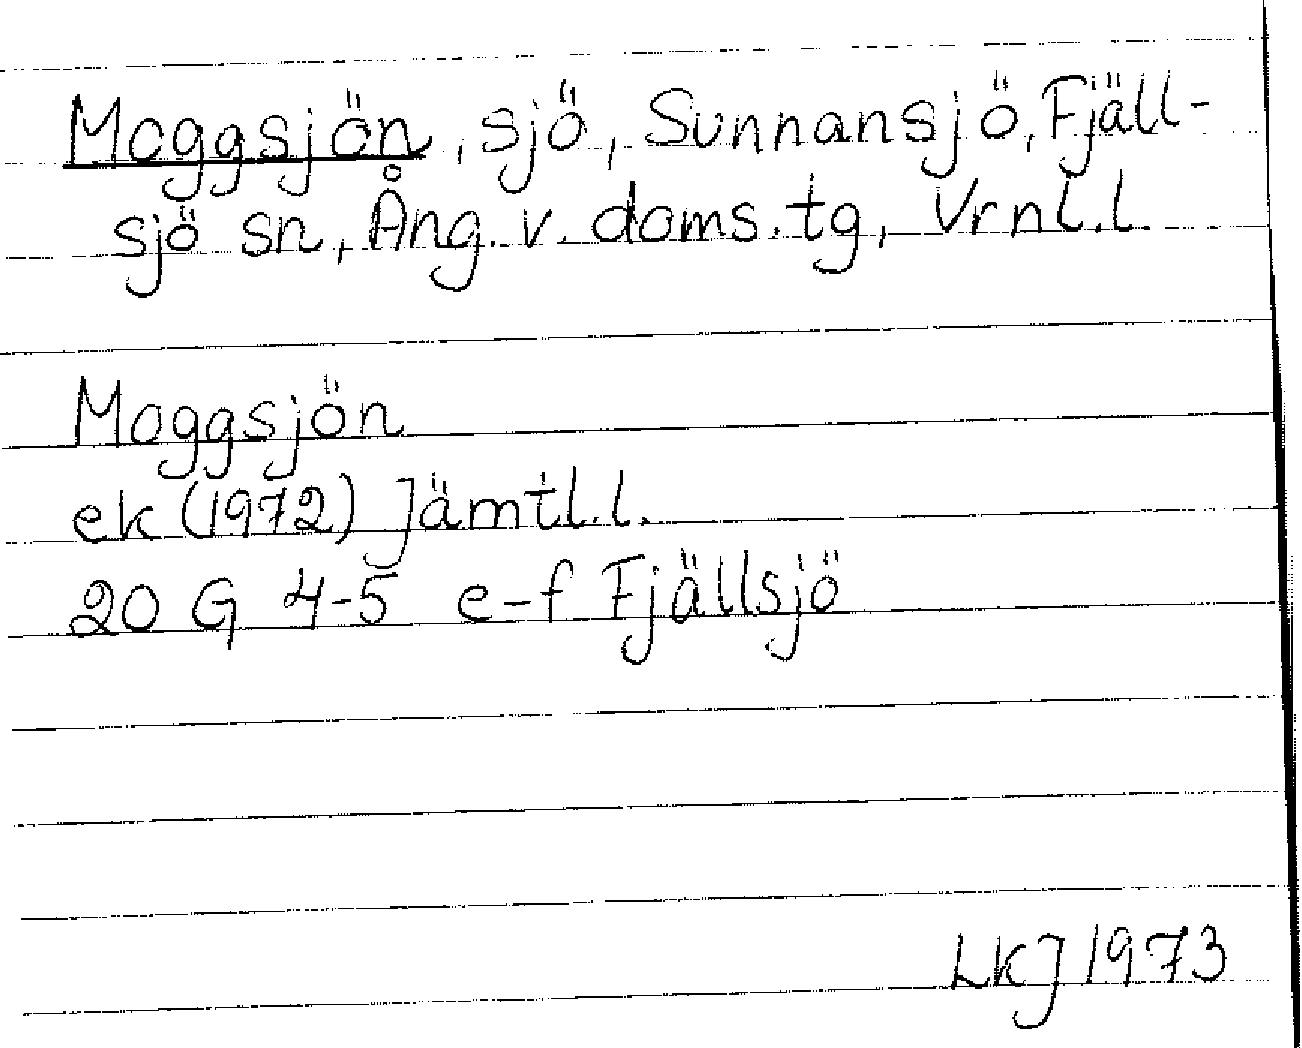 Moggsjön, sjö, Sunnansjö, Fjäll-
sjö sn, Ång. v. doms. tg, Vrnl. l.
Moggsjön
ek (1972) Jämtl. l.
20 G 4-5 e-f Fjällsjö
LKJ 1973